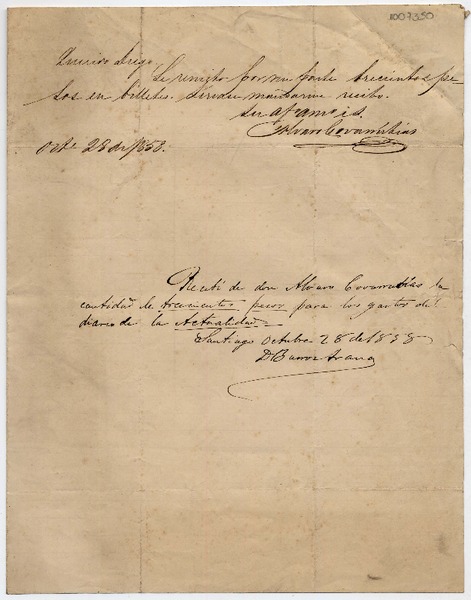 1007350
Querido Diego,
Le remito por mi parte trescientos pe-
sos en billetes. Sírvase mandarme recibo.
Su afmo
Alvaro Covarrubias
Oct.e 28 de 1858.
Recibí de don Alvaro Covarrubias la
cantidad de trescientos pesos para los gastos del
diario de la Actualidad
Santiago Octubre 28 de 1858
D. Barros Arana